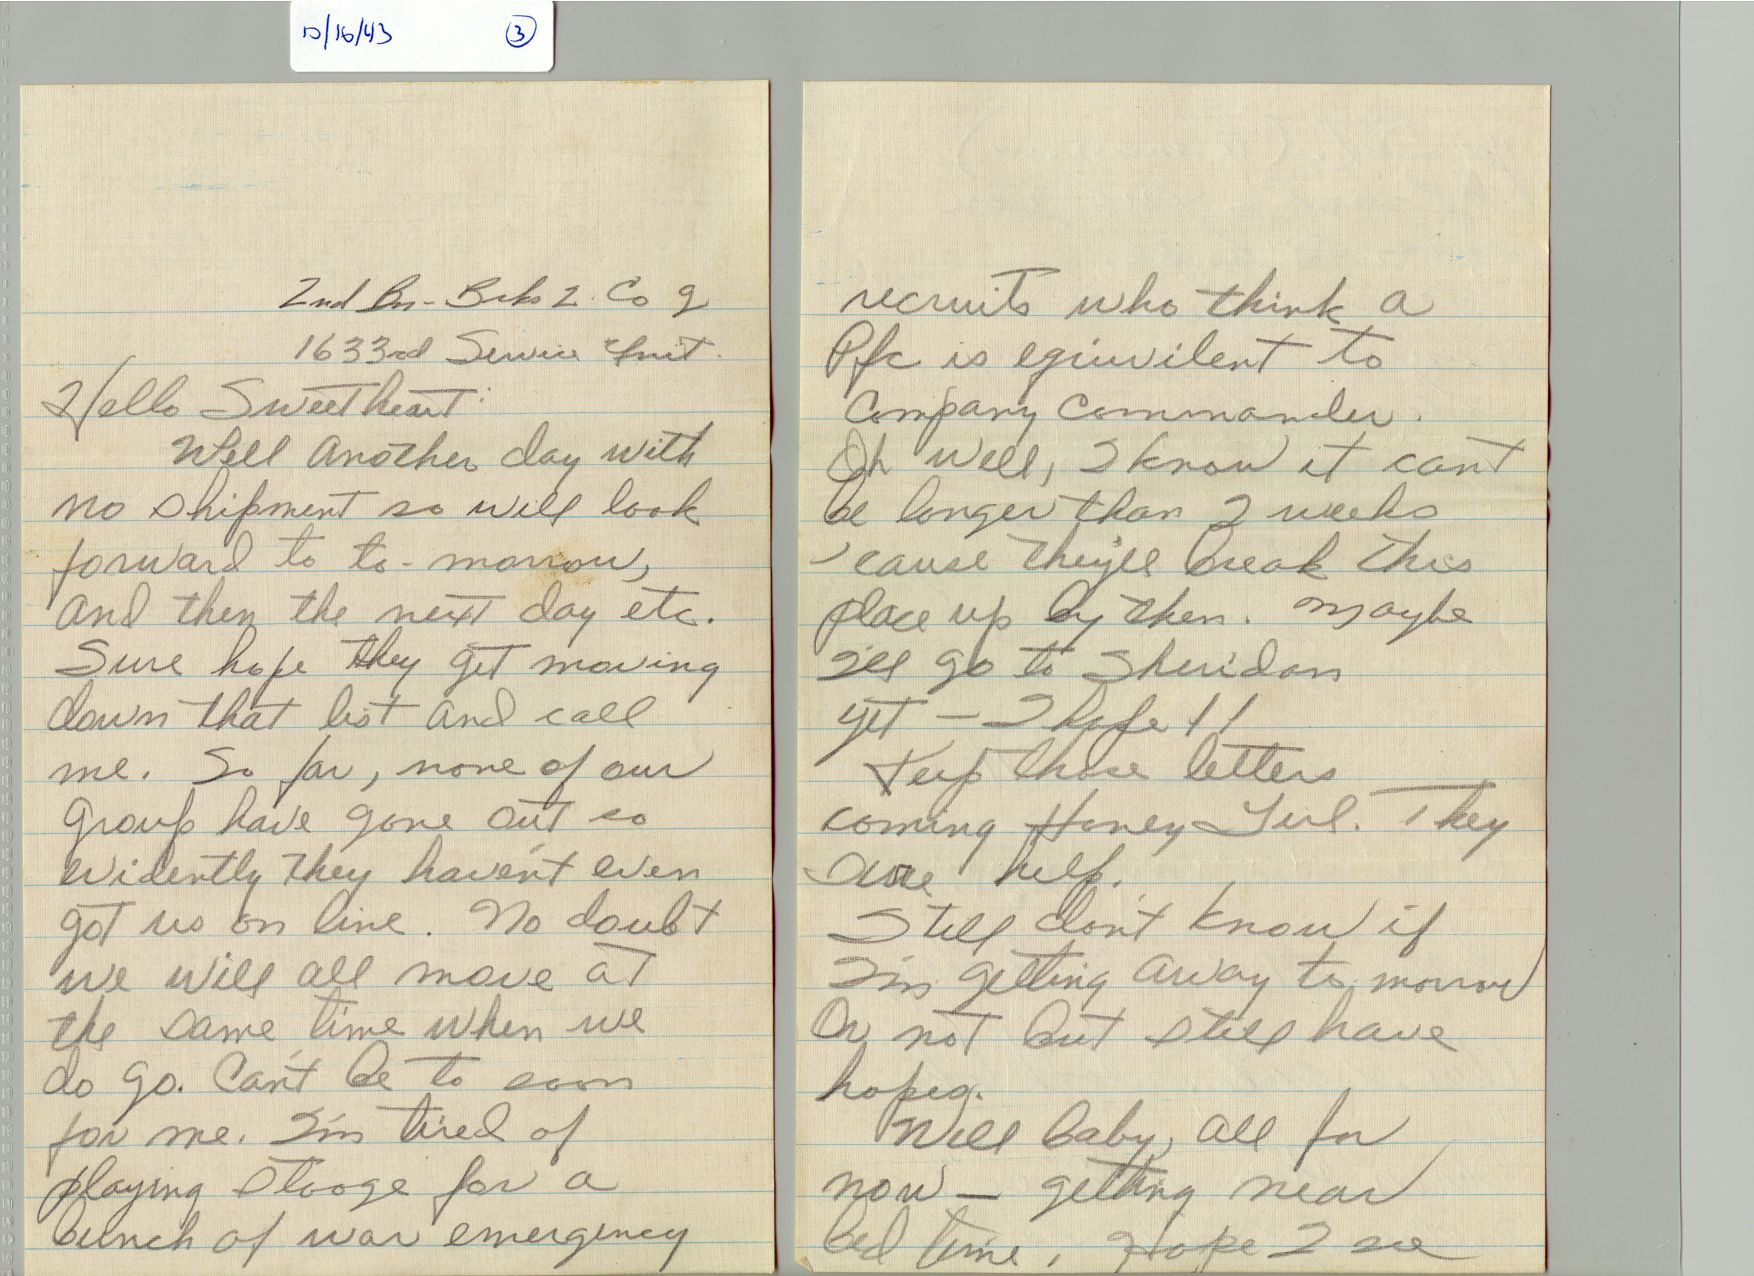 10/16/43 3
2nd Bn - Brks 2. Co g
1633rd Service Unit.
Hello Sweetheart:
Well another day with
no shipment so will look
forward to to-morrow,
and then the next day etc.
Sure hope they get moving
down that list and call
me. So far, none of our
group have gone out so
evidently they haven't even
got us on line. No doubt
we will all move at
the same time when we
do go. Can't be to soon
for me. I'm tired of
playing stooge for a
bunch of war emergency
recruits who think a
Pfc is equivilent to
Company Commander.
Oh well, I know it cant
be longer than 2 weeks
'cause they'll break this
place up by then. Maybe
I'll go to Sheridan
yet — I hope !!
Keep those letters
coming Honey Girl. They
sure help.
Still don't know if
I'm getting away to morrow
or not but still have
hopes.
Well baby, all for
now — getting near
bed time, Hope I see